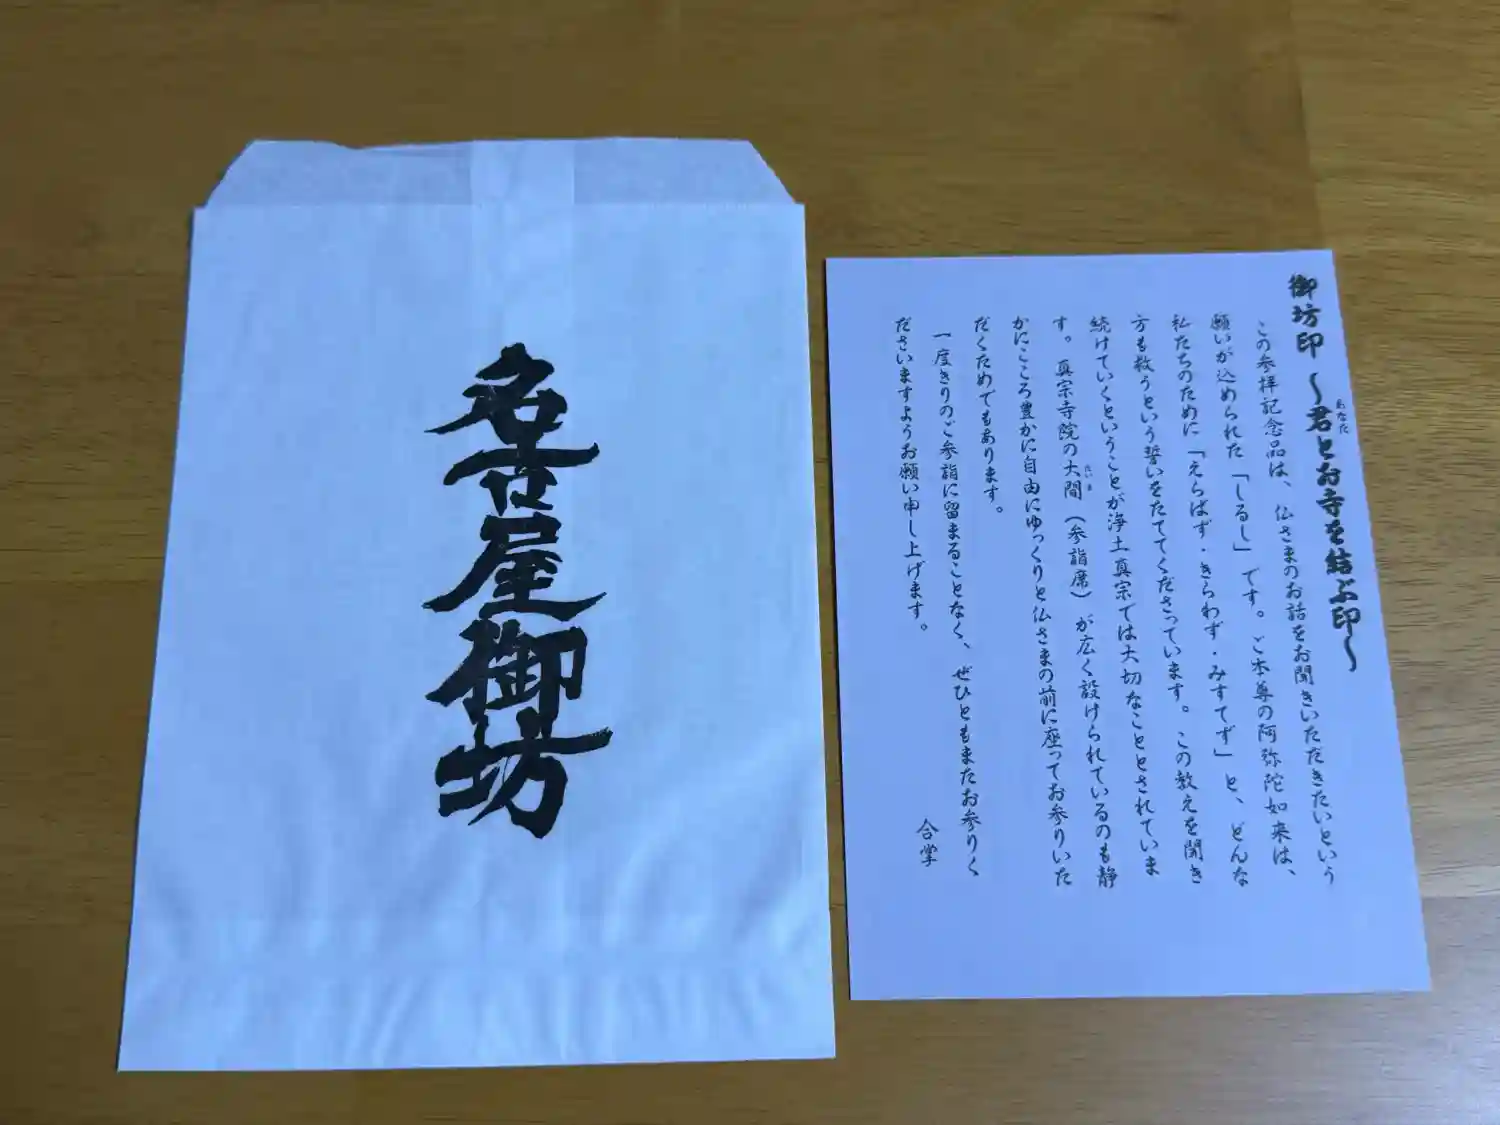 名古屋御坊
御坊印 〜君とお寺を結ぶ印〜
あなた
この参拝記念品は、仏さまのお話をお聞きいただきたいという
願いが込められた「しるし」です。ご本尊の阿弥陀如来は、
私たちのために「えらばず・きらわず・みすてず」と、どんな
方も救うという誓いをたててくださっています。この教えを聞き
続けていくということが浄土真宗では大切なこととされていま
す。真宗寺院の大間（参詣席）が広く設けられているのも静
だいま
かにこころ豊かに自由にゆっくりと仏さまの前に座ってお参りいた
だくためでもあります。
一度きりのご参詣に留まることなく、ぜひともまたお参りく
ださいますようお願い申し上げます。
合掌